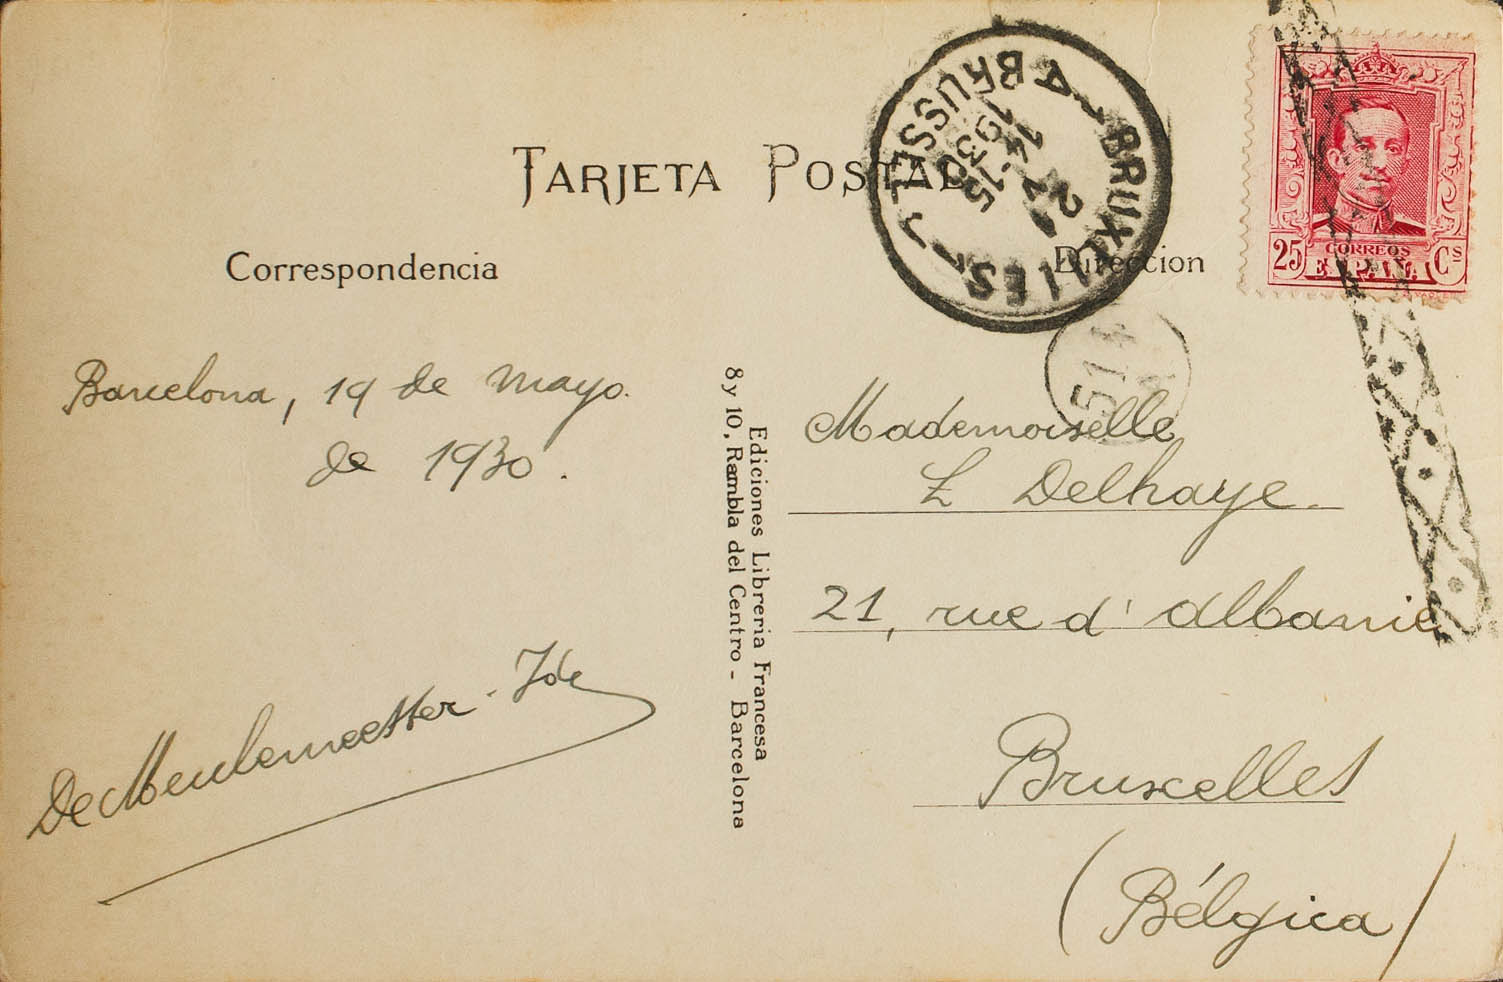 TARJETA POSTAL
Correspondencia
Direccion
BRUXELLES
BRUSSEL
14-15
1930
25 Cs
CORREOS
ESPAÑA
514
Barcelona, 19 de mayo.
de 1930.
De Meulemeester. Ide
Ediciones Libreria Francesa
8 y 10, Rambla del Centro - Barcelona
Mademoiselle
L Delhaye.
21, rue d' Albanie
Bruxelles
(Bélgica)